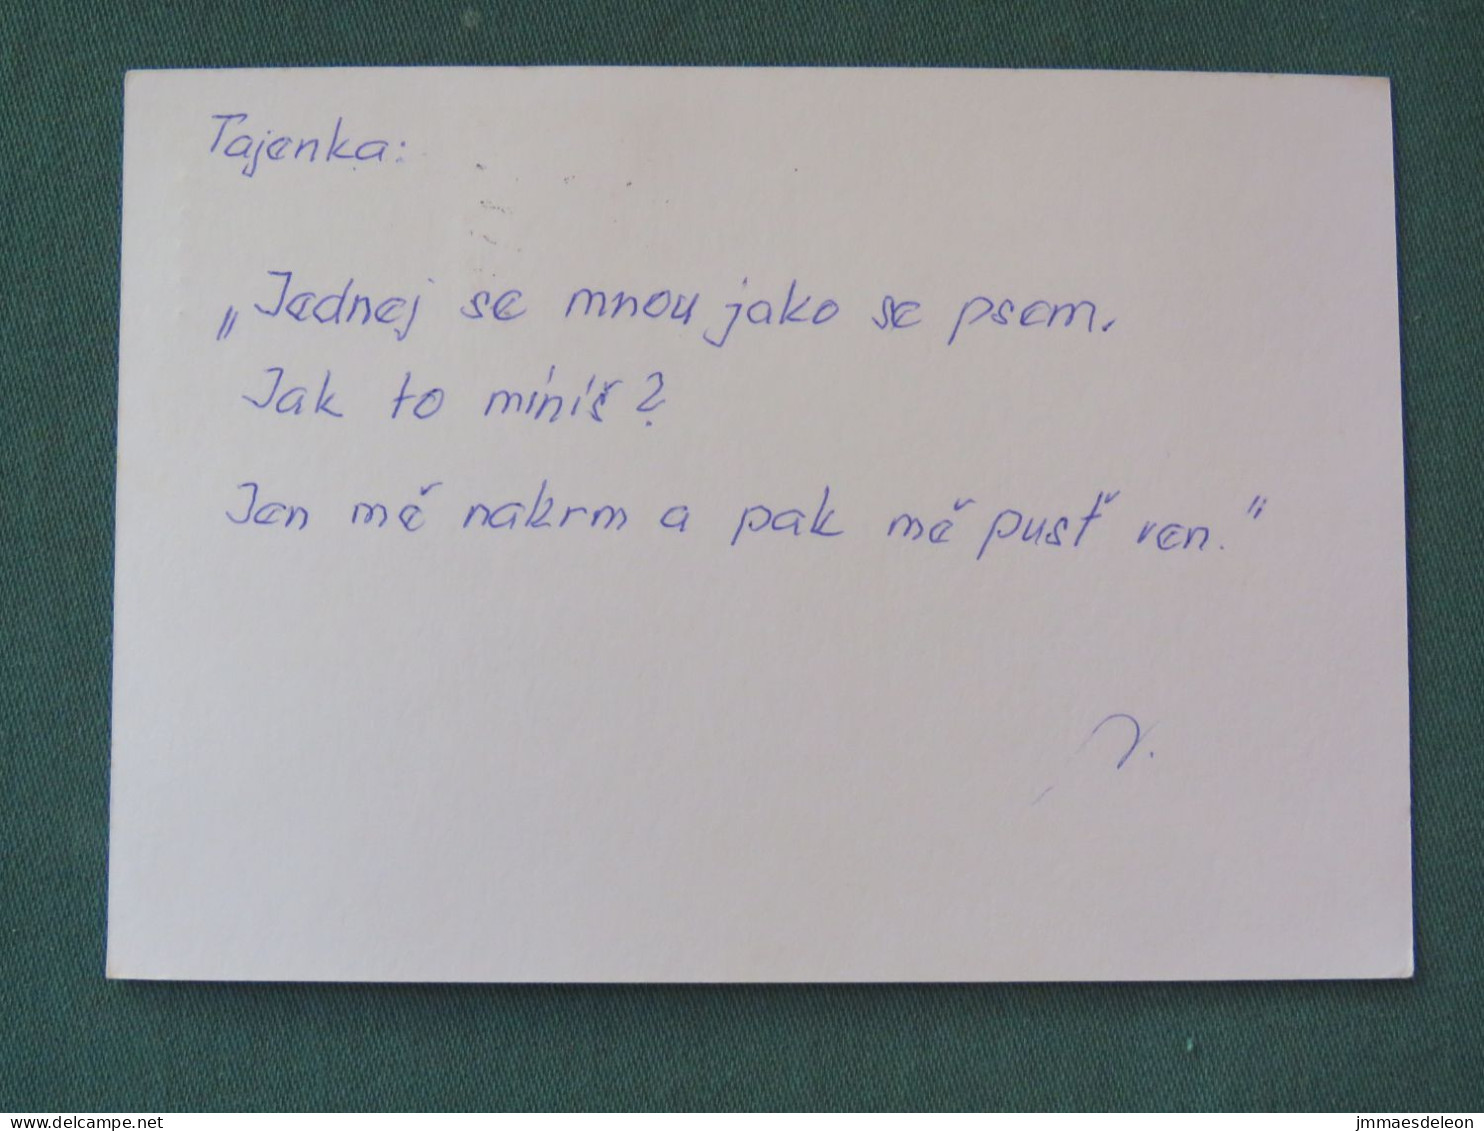 Tajenka:
„Jednej se mnou jako se psem.
Jak to míníš?
Jen mě nakrm a pak mě pusť ven.“
delcampe.net
jmmaesdeleon